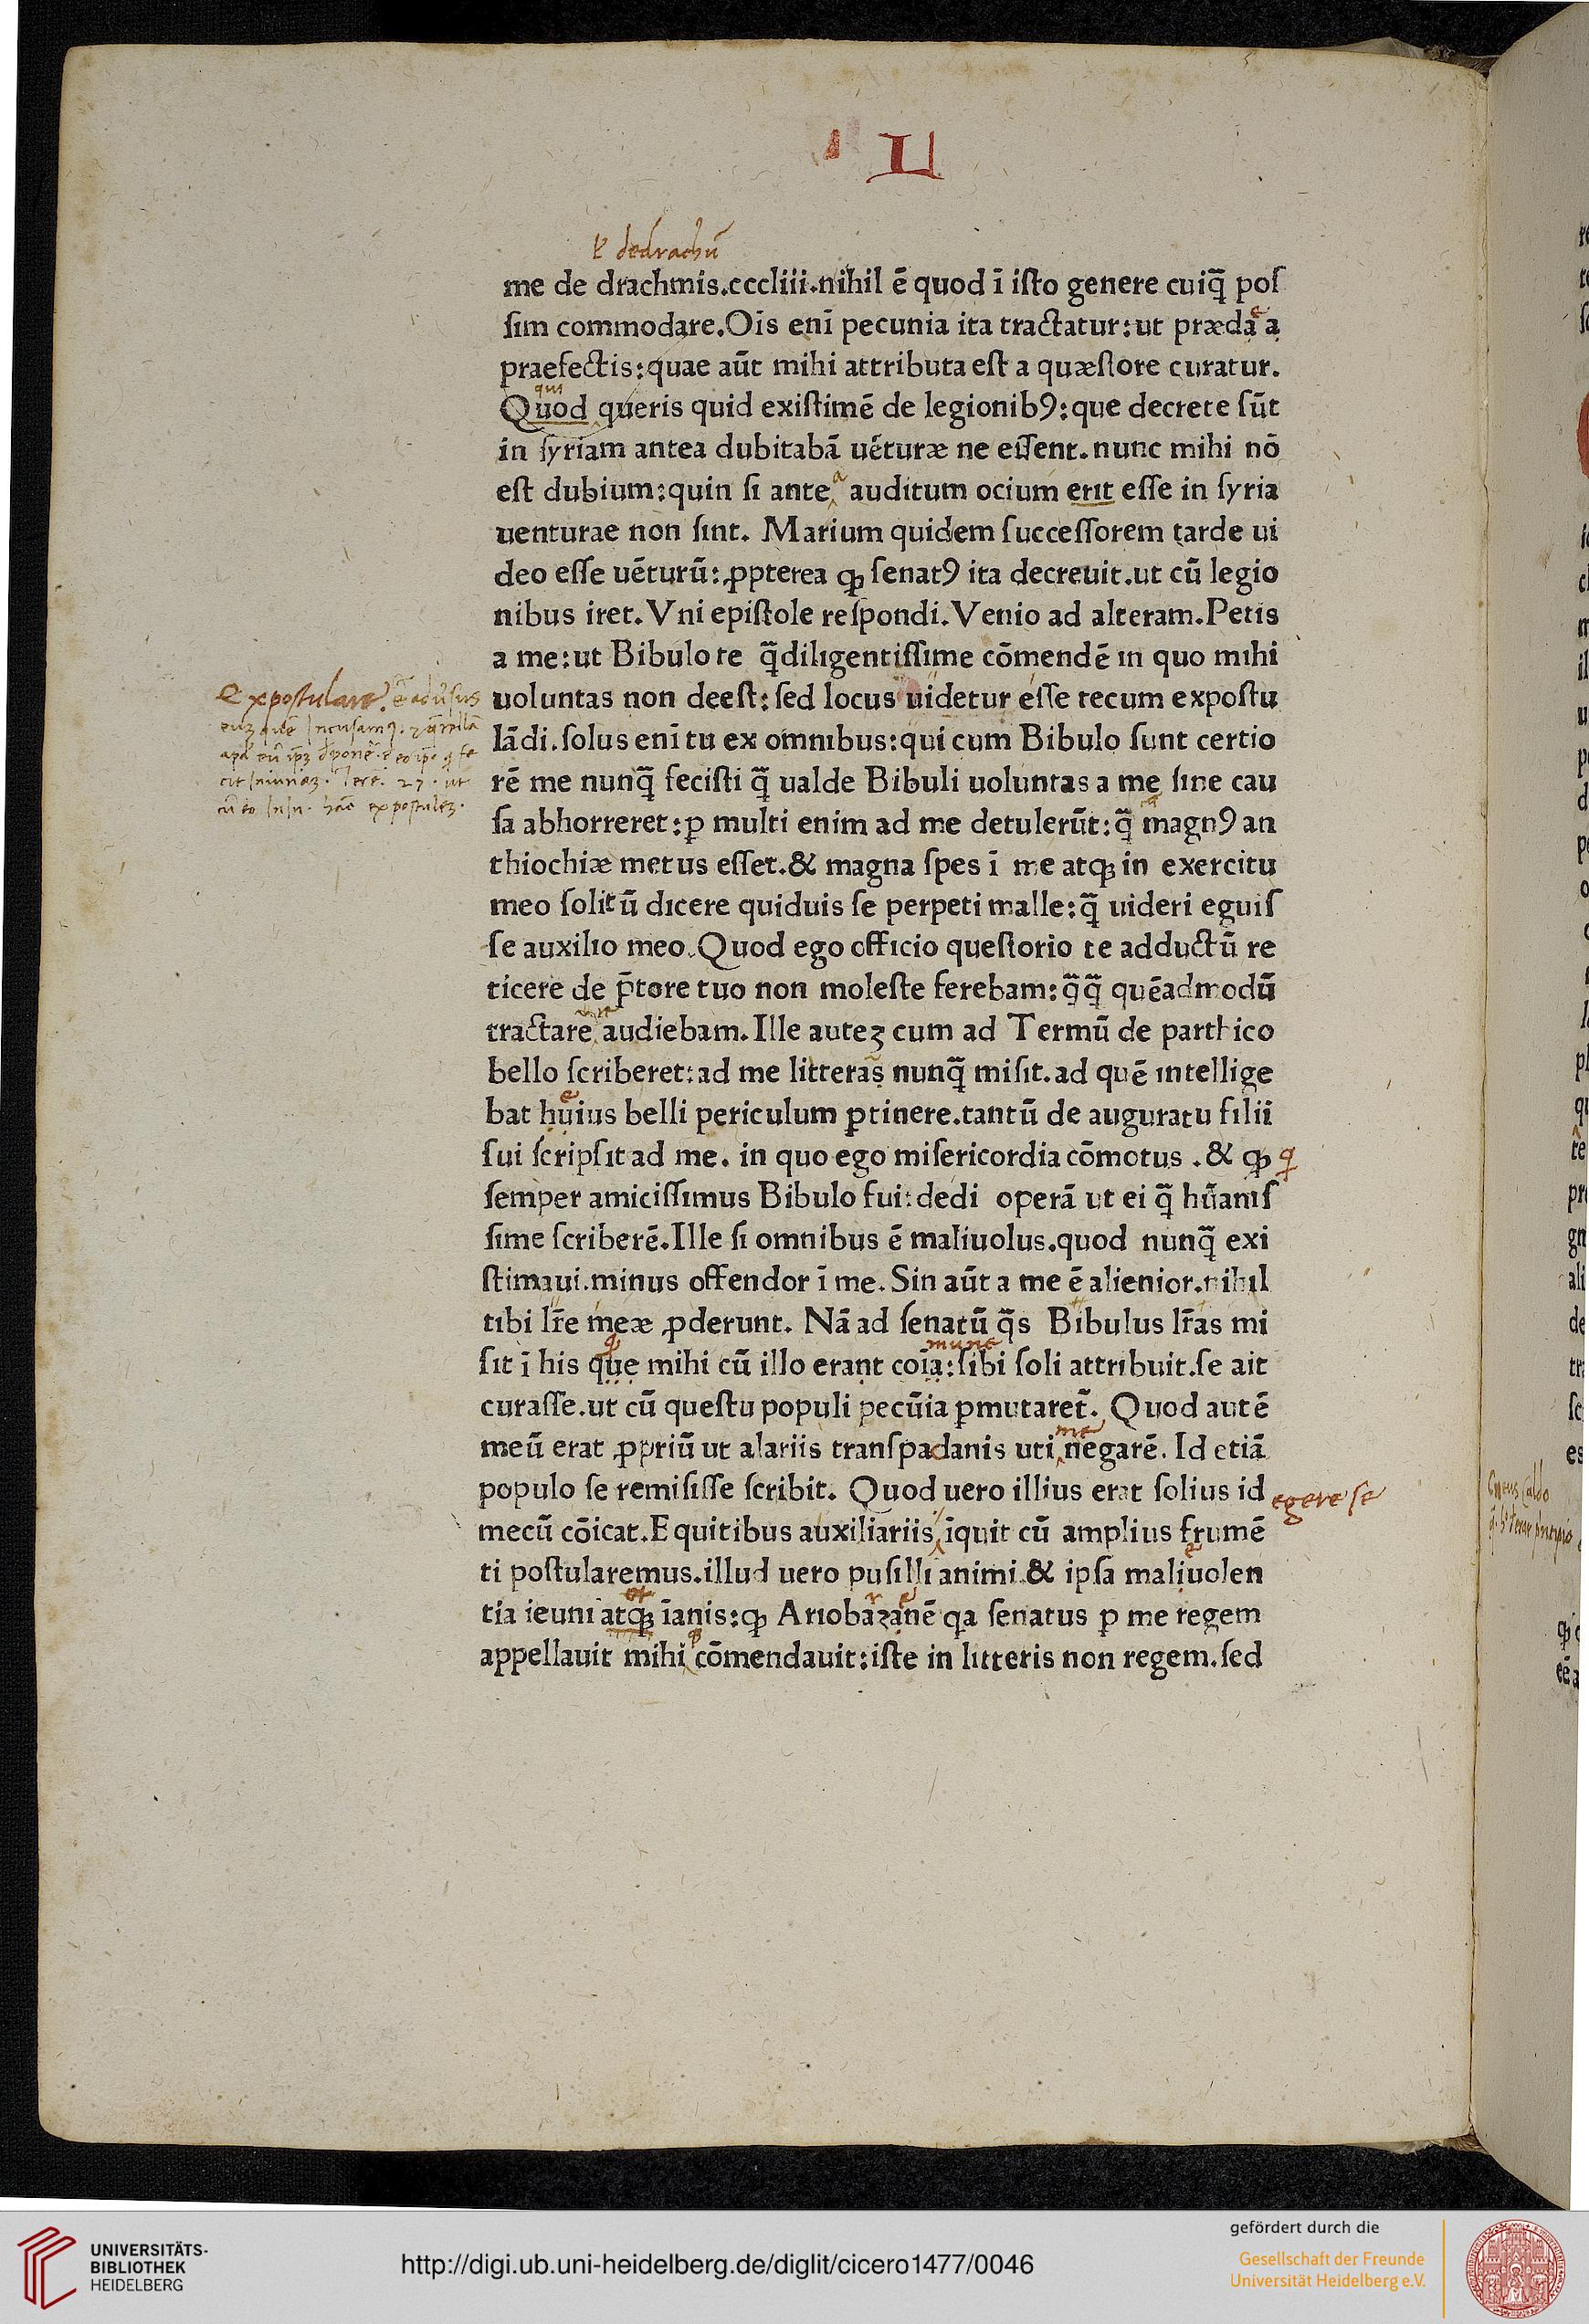 L
dedrachū
me de drachmis.cccliii.nihil ē quod ī iſto genere cuiq̄ poſ
ſim commodare.Oīs enī pecunia ita tractatur:ut præda a
praefectis:quae aūt mihi attributa eſt a quæſtore curatur.
qui
Quod queris quid exiſtimē de legionibꝰ:que decrete ſūt
in ſyriam antea dubitabā uēturæ ne eſſent.nunc mihi nō
eſt dubium:quin ſi ante auditum ocium erit eſſe in ſyria
uenturae non ſint. Marium quidem ſucceſſorem tarde ui
deo eſſe uēturū:ꝓpterea ꝙ ſenatꝰ ita decreuit.ut cū legio
nibus iret.Vni epiſtole reſpondi.Venio ad alteram.Petis
a me:ut Bibulo te q̄diligentiſſime cōmendē in quo mihi
Expostulare
uoluntas non deeſt:ſed locus uidetur eſſe tecum expoſtu
lādi.ſolus enī tu ex omnibus:qui cum Bibulo ſunt certio
rē me nunq̄ feciſti q̄ ualde Bibuli uoluntas a me ſine cau
expostulez.
ſa abhorreret:ꝑ multi enim ad me detulerūt:q̄ magnꝰ an
thiochiæ metus eſſet.& magna ſpes ī me atqꝫ in exercitu
meo ſolitū dicere quiduis ſe perpeti malle:q̄ uideri eguiſ
ſe auxilio meo.Quod ego officio queſtorio te adductū re
ticere de p̄tore tuo non moleſte ferebam:q̄q̄ quēadmodū
tractare audiebam.Ille auteꝫ cum ad Termū de parthico
bello ſcriberet:ad me litteras nunq̄ miſit.ad quē intellige
bat huius belli periculum ꝑtinere.tantū de auguratu filii
ſui ſcripſit ad me. in quo ego miſericordia cōmotus .& ꝙ
ſemper amiciſſimus Bibulo fui:dedi operā ut ei q̄ hūaniſ
ſime ſcriberē.Ille ſi omnibus ē maliuolus.quod nunq̄ exi
ſtimaui.minus offendor ī me.Sin aūt a me ē alienior.nihil
tibi lr̄e meæ ꝓderunt. Nā ad ſenatū q̄s Bibulus lr̄as mi
ſit ī his que mihi cū illo erant coīa:ſibi ſoli attribuit.ſe ait
curaſſe.ut cū queſtu populi pecūia ꝑmutaret̄. Quod autē
me
meū erat ꝓpriū ut alariis tranſpadanis uti negarē. Id etiā
populo ſe remiſiſſe ſcribit. Quod uero illius erat ſolius id
egere ſe
mecū cōicat.Equitibus auxiliariis īquit cū amplius frumē
ti poſtularemus.illud uero puſilli animi.& ipſa maliuolen
tia ieuni atqꝫ īanis:ꝙ Ariobarzanē qa ſenatus ꝑ me regem
appellauit mihi cōmendauit:iſte in litteris non regem.ſed
UNIVERSITÄTS-
BIBLIOTHEK
HEIDELBERG
http://digi.ub.uni-heidelberg.de/diglit/cicero1477/0046
gefördert durch die
Gesellschaft der Freunde
Universität Heidelberg e.V.